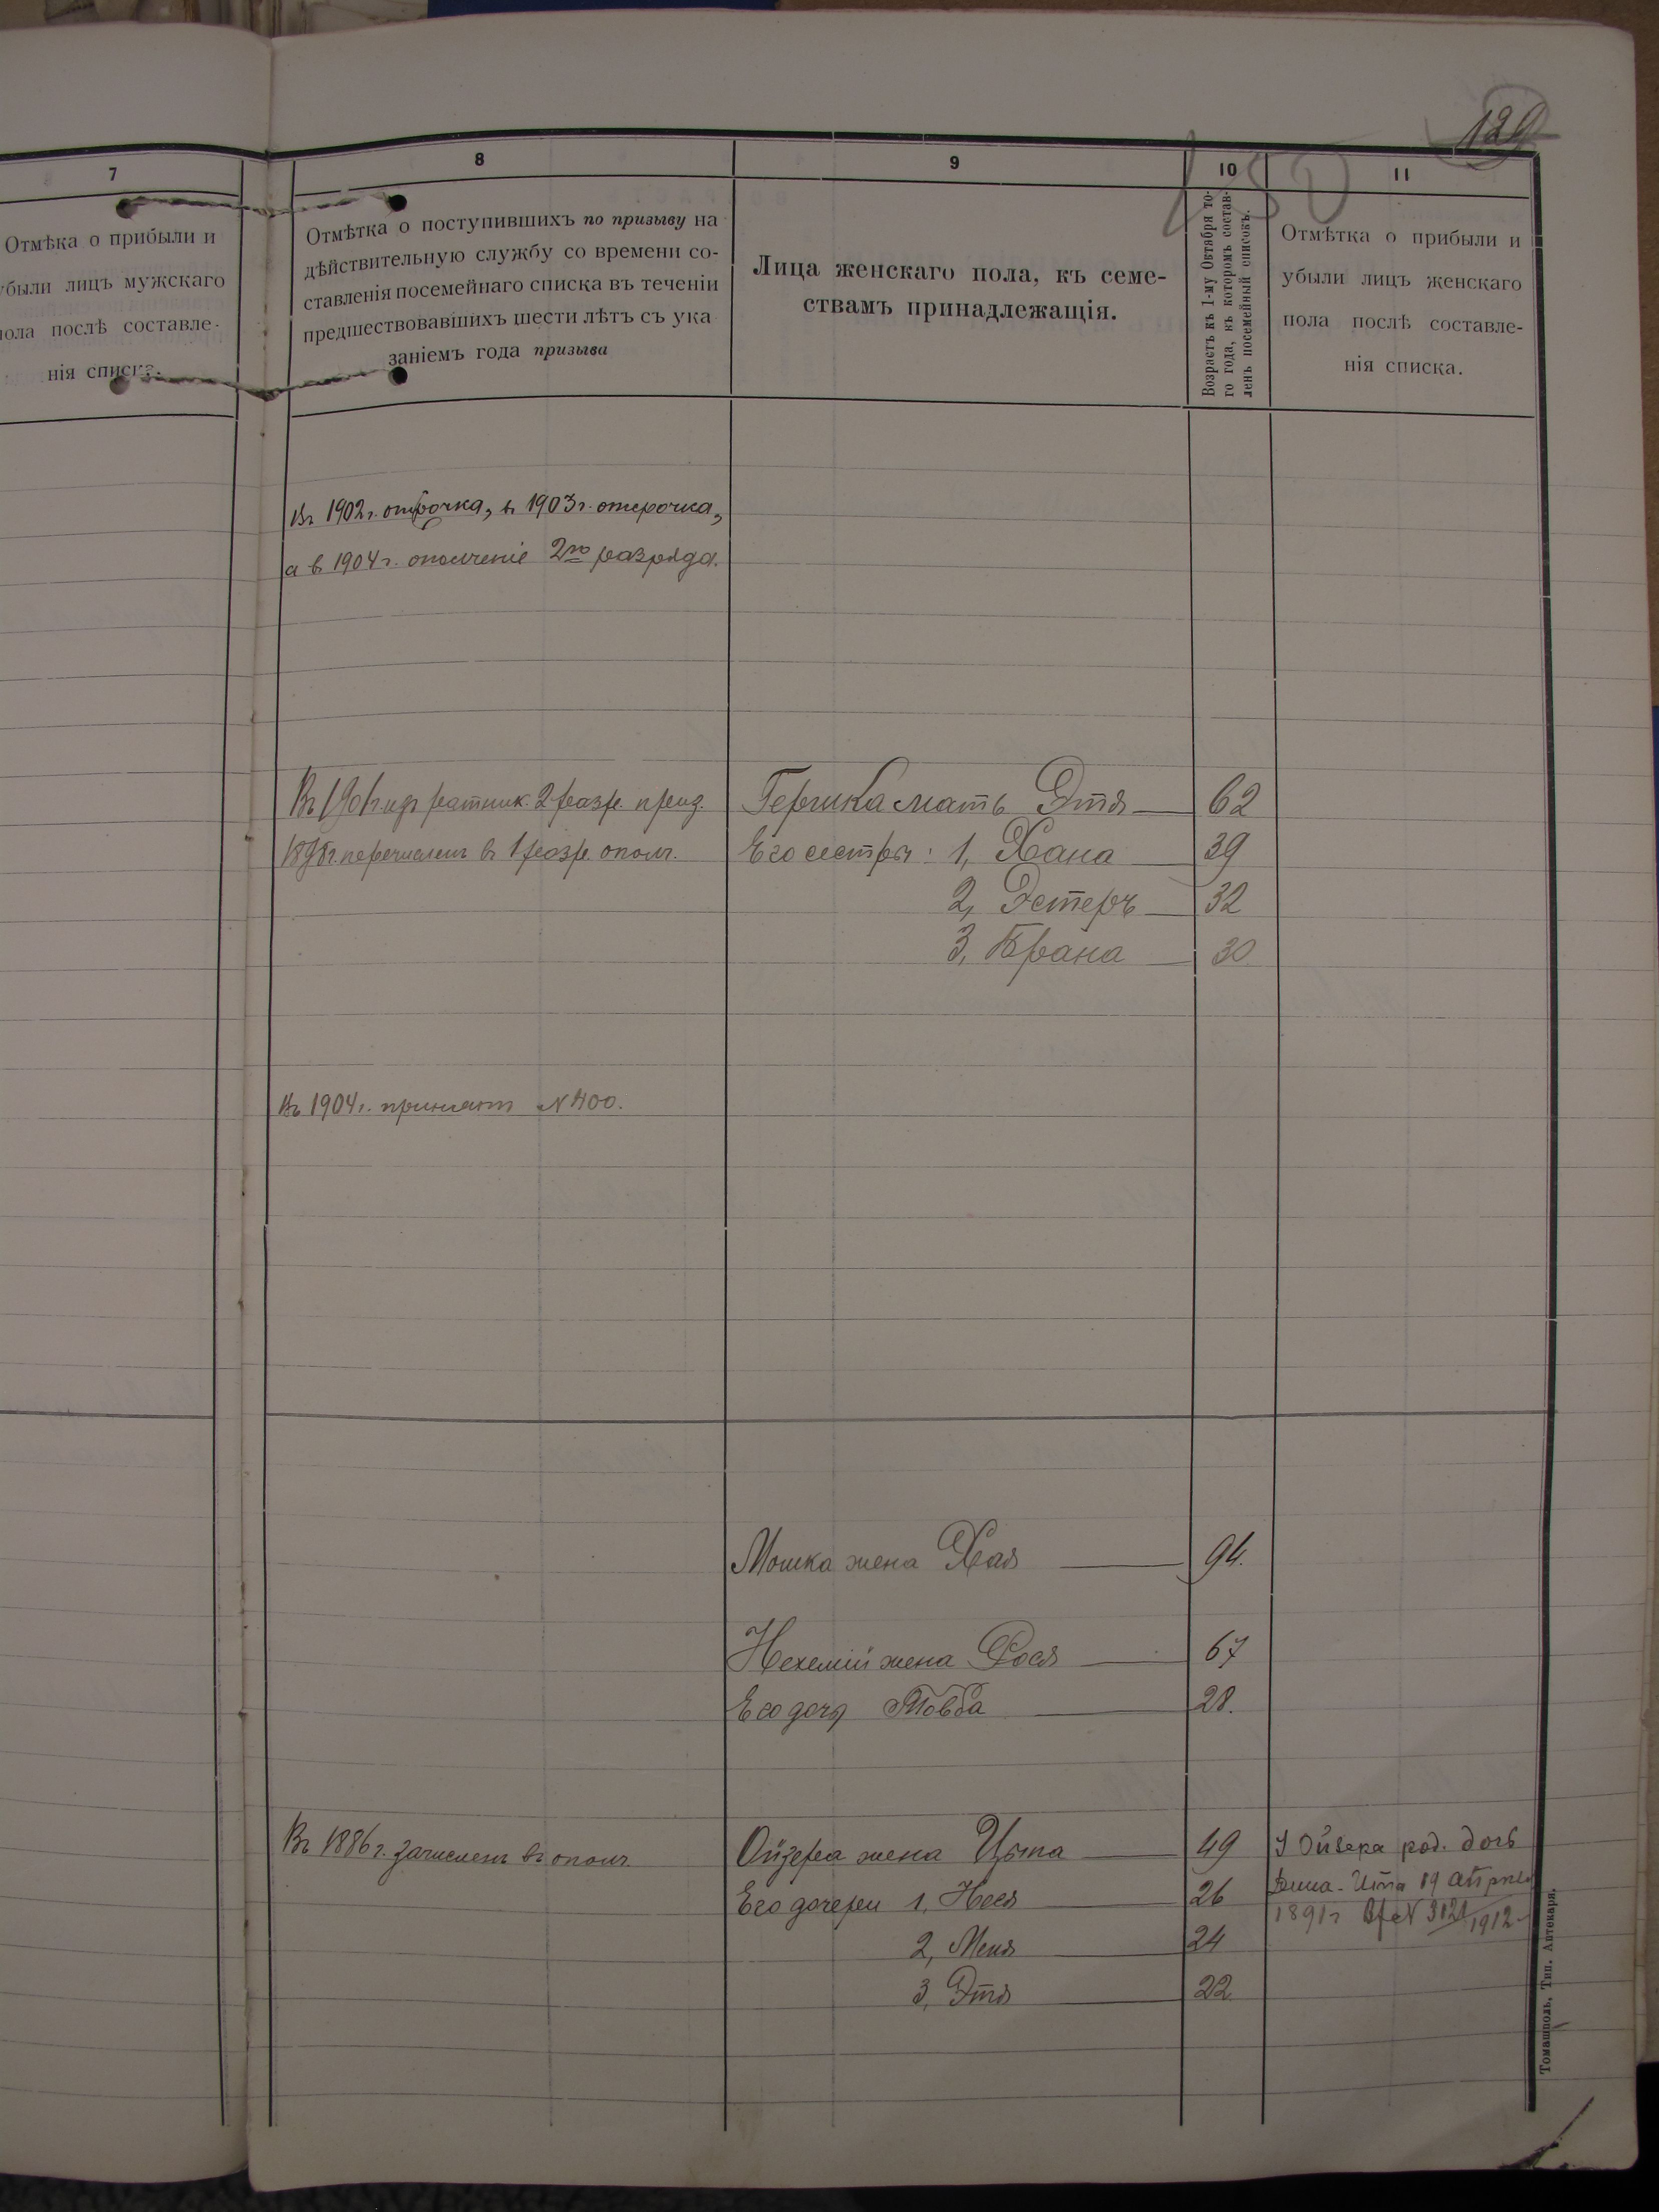 129
130
7
Отмѣка о прибыли и
убыли лицъ мужскаго
пола послѣ составле-
нія списка.
8
Отмѣтка о поступившихъ по призыву на
дѣйствительную службу со времени со-
ставленія посемейнаго списка въ теченіи
предшествовавшихъ шести лѣтъ съ ука
заніемъ года призыва
9
Лица женскаго пола, къ семе-
ствамъ принадлежащія.
10
Возрастъ къ 1-му Октября то-
го года, къ которомъ состав-
ленъ посемейный списокъ.
11
Отмѣтка о прибыли и
убыли лицъ женскаго
пола послѣ составле-
нія списка.
Въ 1902 г. отсрочка, в 1903 г. отсрочка,
а в 1904 г. ополченіе 2го разряда.
ратник. 2 разр.
перечислен в 1 разр. ополч.
Гершка мать Этя 62
Его сестры: 1, Хана 39
2, Эстеръ 32
3, Брана 30
Въ 1904 г. принят № 400.
Мошка жена Хая 94.
Нехемий жена Рося 67
Его дочь Товба 28.
Въ 1886 г. зачислен въ ополч.
Ойзера жена Цыпа 49
Его дочери 1, Нися 26
2, Меня 24
3, Этя 22
У Ойзера род. дочь
19 апреля
1891 г № 3121/1912
Томашполь, Тип. Аптекаря.